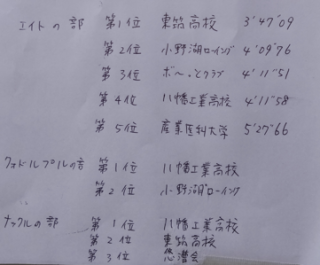 エイトの部 第1位 東筑高校 3'47'09
第2位 小野湖ローイング 4'09'76
第3位 ボート とクラブ 4'11'51
第4位 八幡工業高校 4'11'58
第5位 産業医科大学 5'27'66
クォドルプルの部 第1位 八幡工業高校
第2位 小野湖ローイング
ナックルの部 第1位 八幡工業高校
第2位 東筑高校
第3位